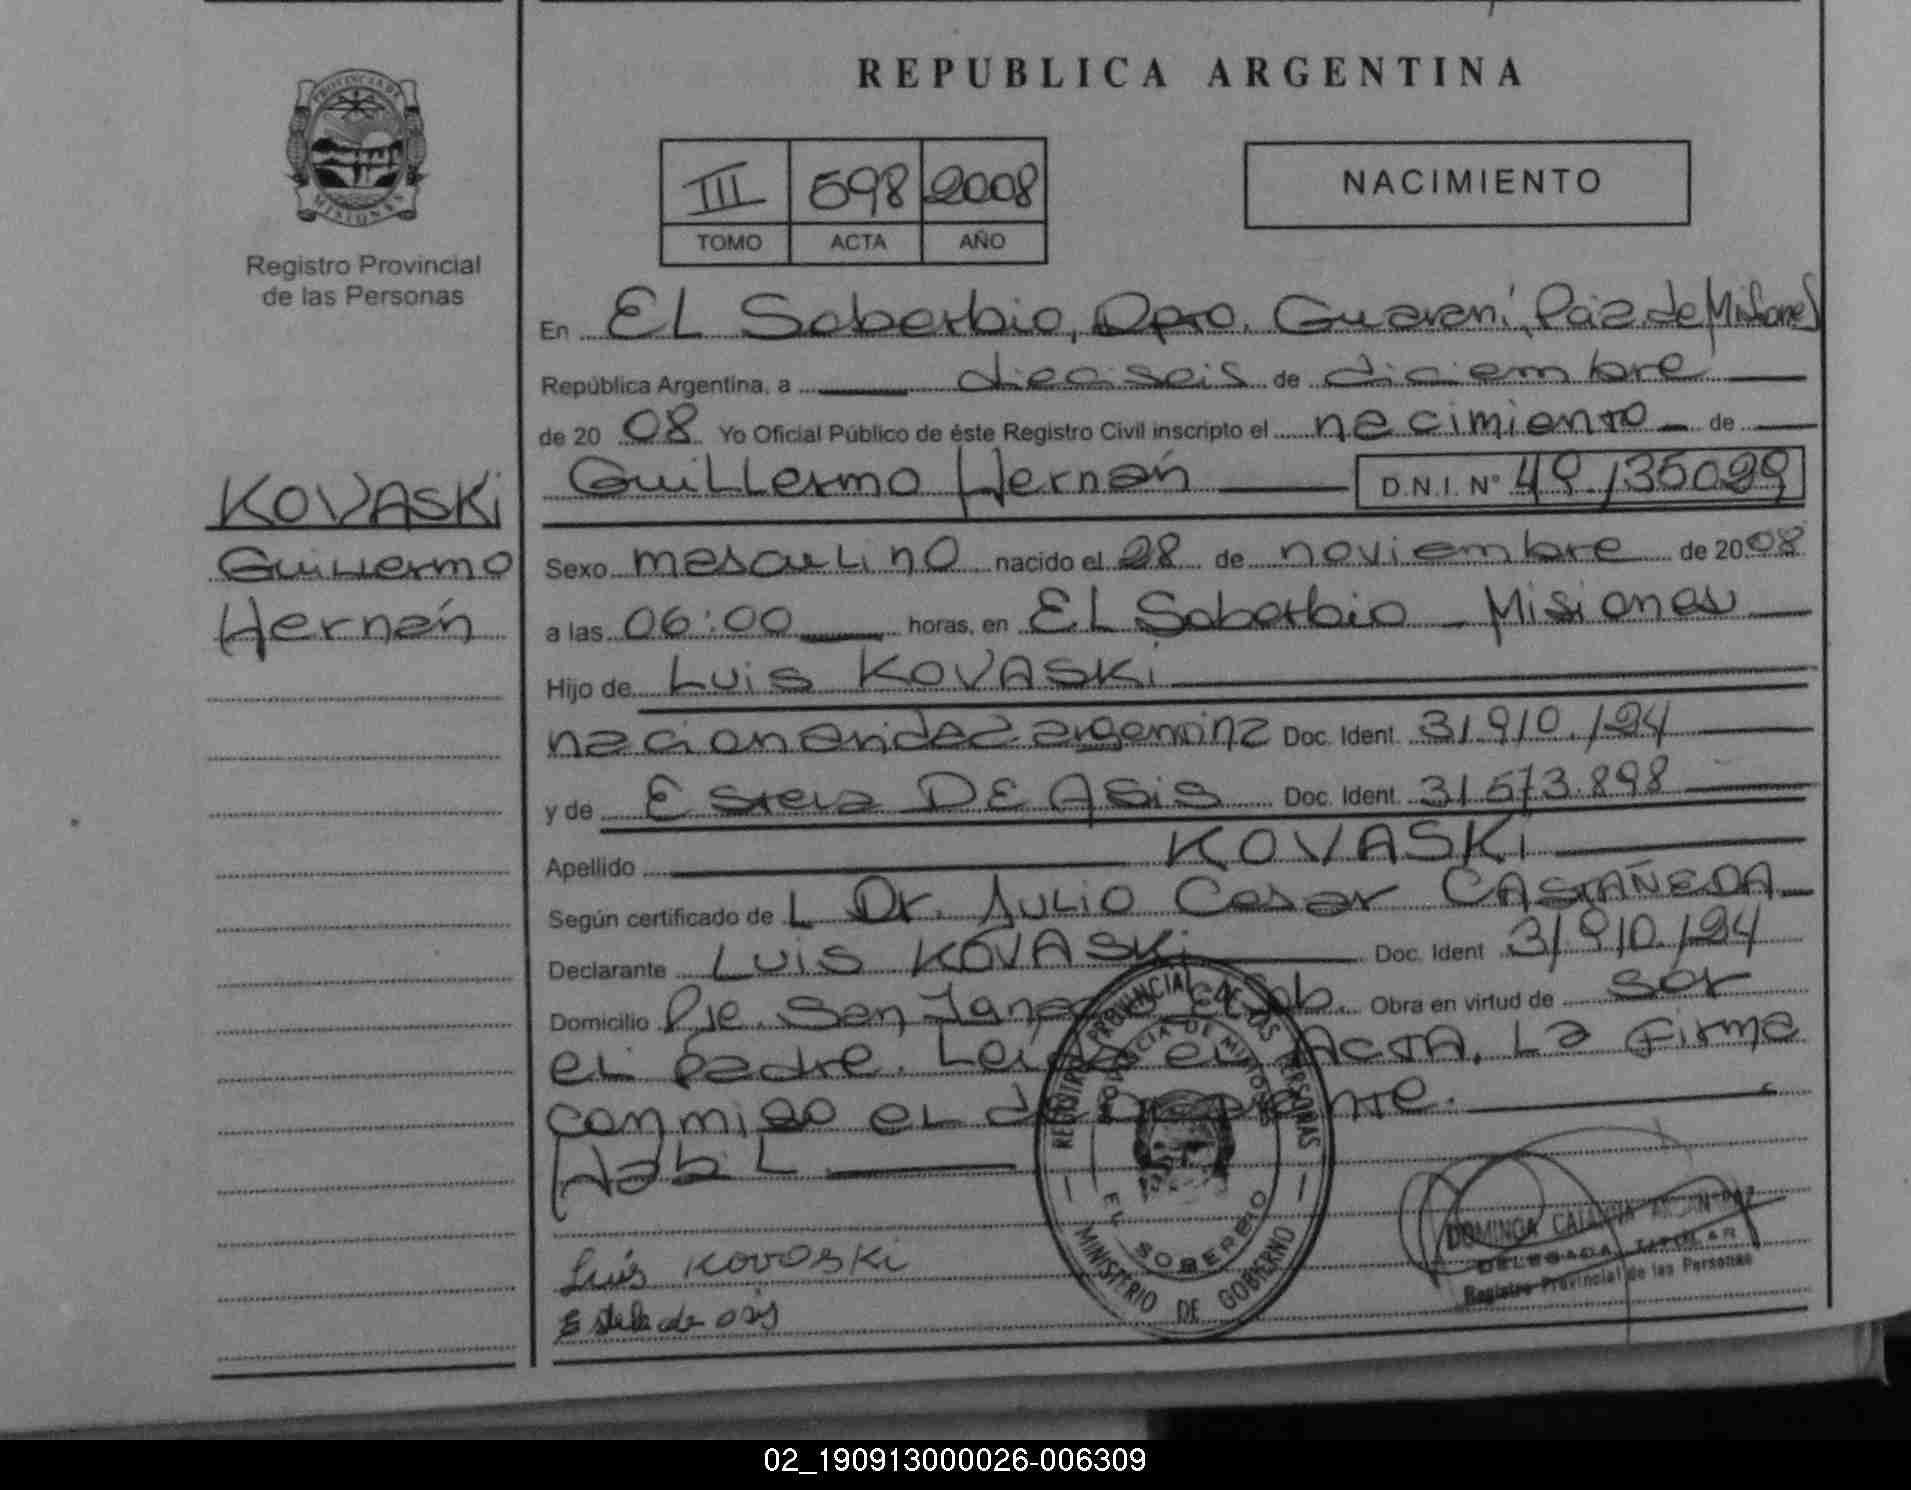 PROVINCIA DE
MISIONES
Registro Provincial
de las Personas
KOVASKi
Guillermo
Hernán
REPUBLICA ARGENTINA
III 598 2008
TOMO ACTA AÑO
NACIMIENTO
En EL Soberbio, Dpto. Guaraní, Pcia. de Misiones
República Argentina, a dieciseis de diciembre
de 20 08 Yo Oficial Público de éste Registro Civil inscripto el nacimiento de
Guillermo Hernán D.N.I. Nº 49.135029
Sexo masculino nacido el 28 de noviembre de 2008
a las 06:00 horas, en EL Soberbio - Misiones
Hijo de Luis KOVASKi
argentina Doc. Ident. 31.910.194
y de Estela DE ASis Doc. Ident. 31.573.898
Apellido KOVASKi
Según certificado de L Dr. Julio Cesar CASTAÑEDA
Declarante Luis KOVASKi Doc. Ident 31.910.194
Domicilio Pje. San Ignacio El Sob. Obra en virtud de ser
el padre. Leída el ACTA, La firma
conmigo el declarante.
Habil
Luis Kovaski
Estela de asis
REGISTRO PROVINCIAL DE LAS PERSONAS
PROVINCIA DE MISIONES
EL SOBERBIO
MINISTERIO DE GOBIERNO
DOMINGA CATALINA
DELEGADA TITULAR
Registro Provincial de las Personas
02_190913000026-006309